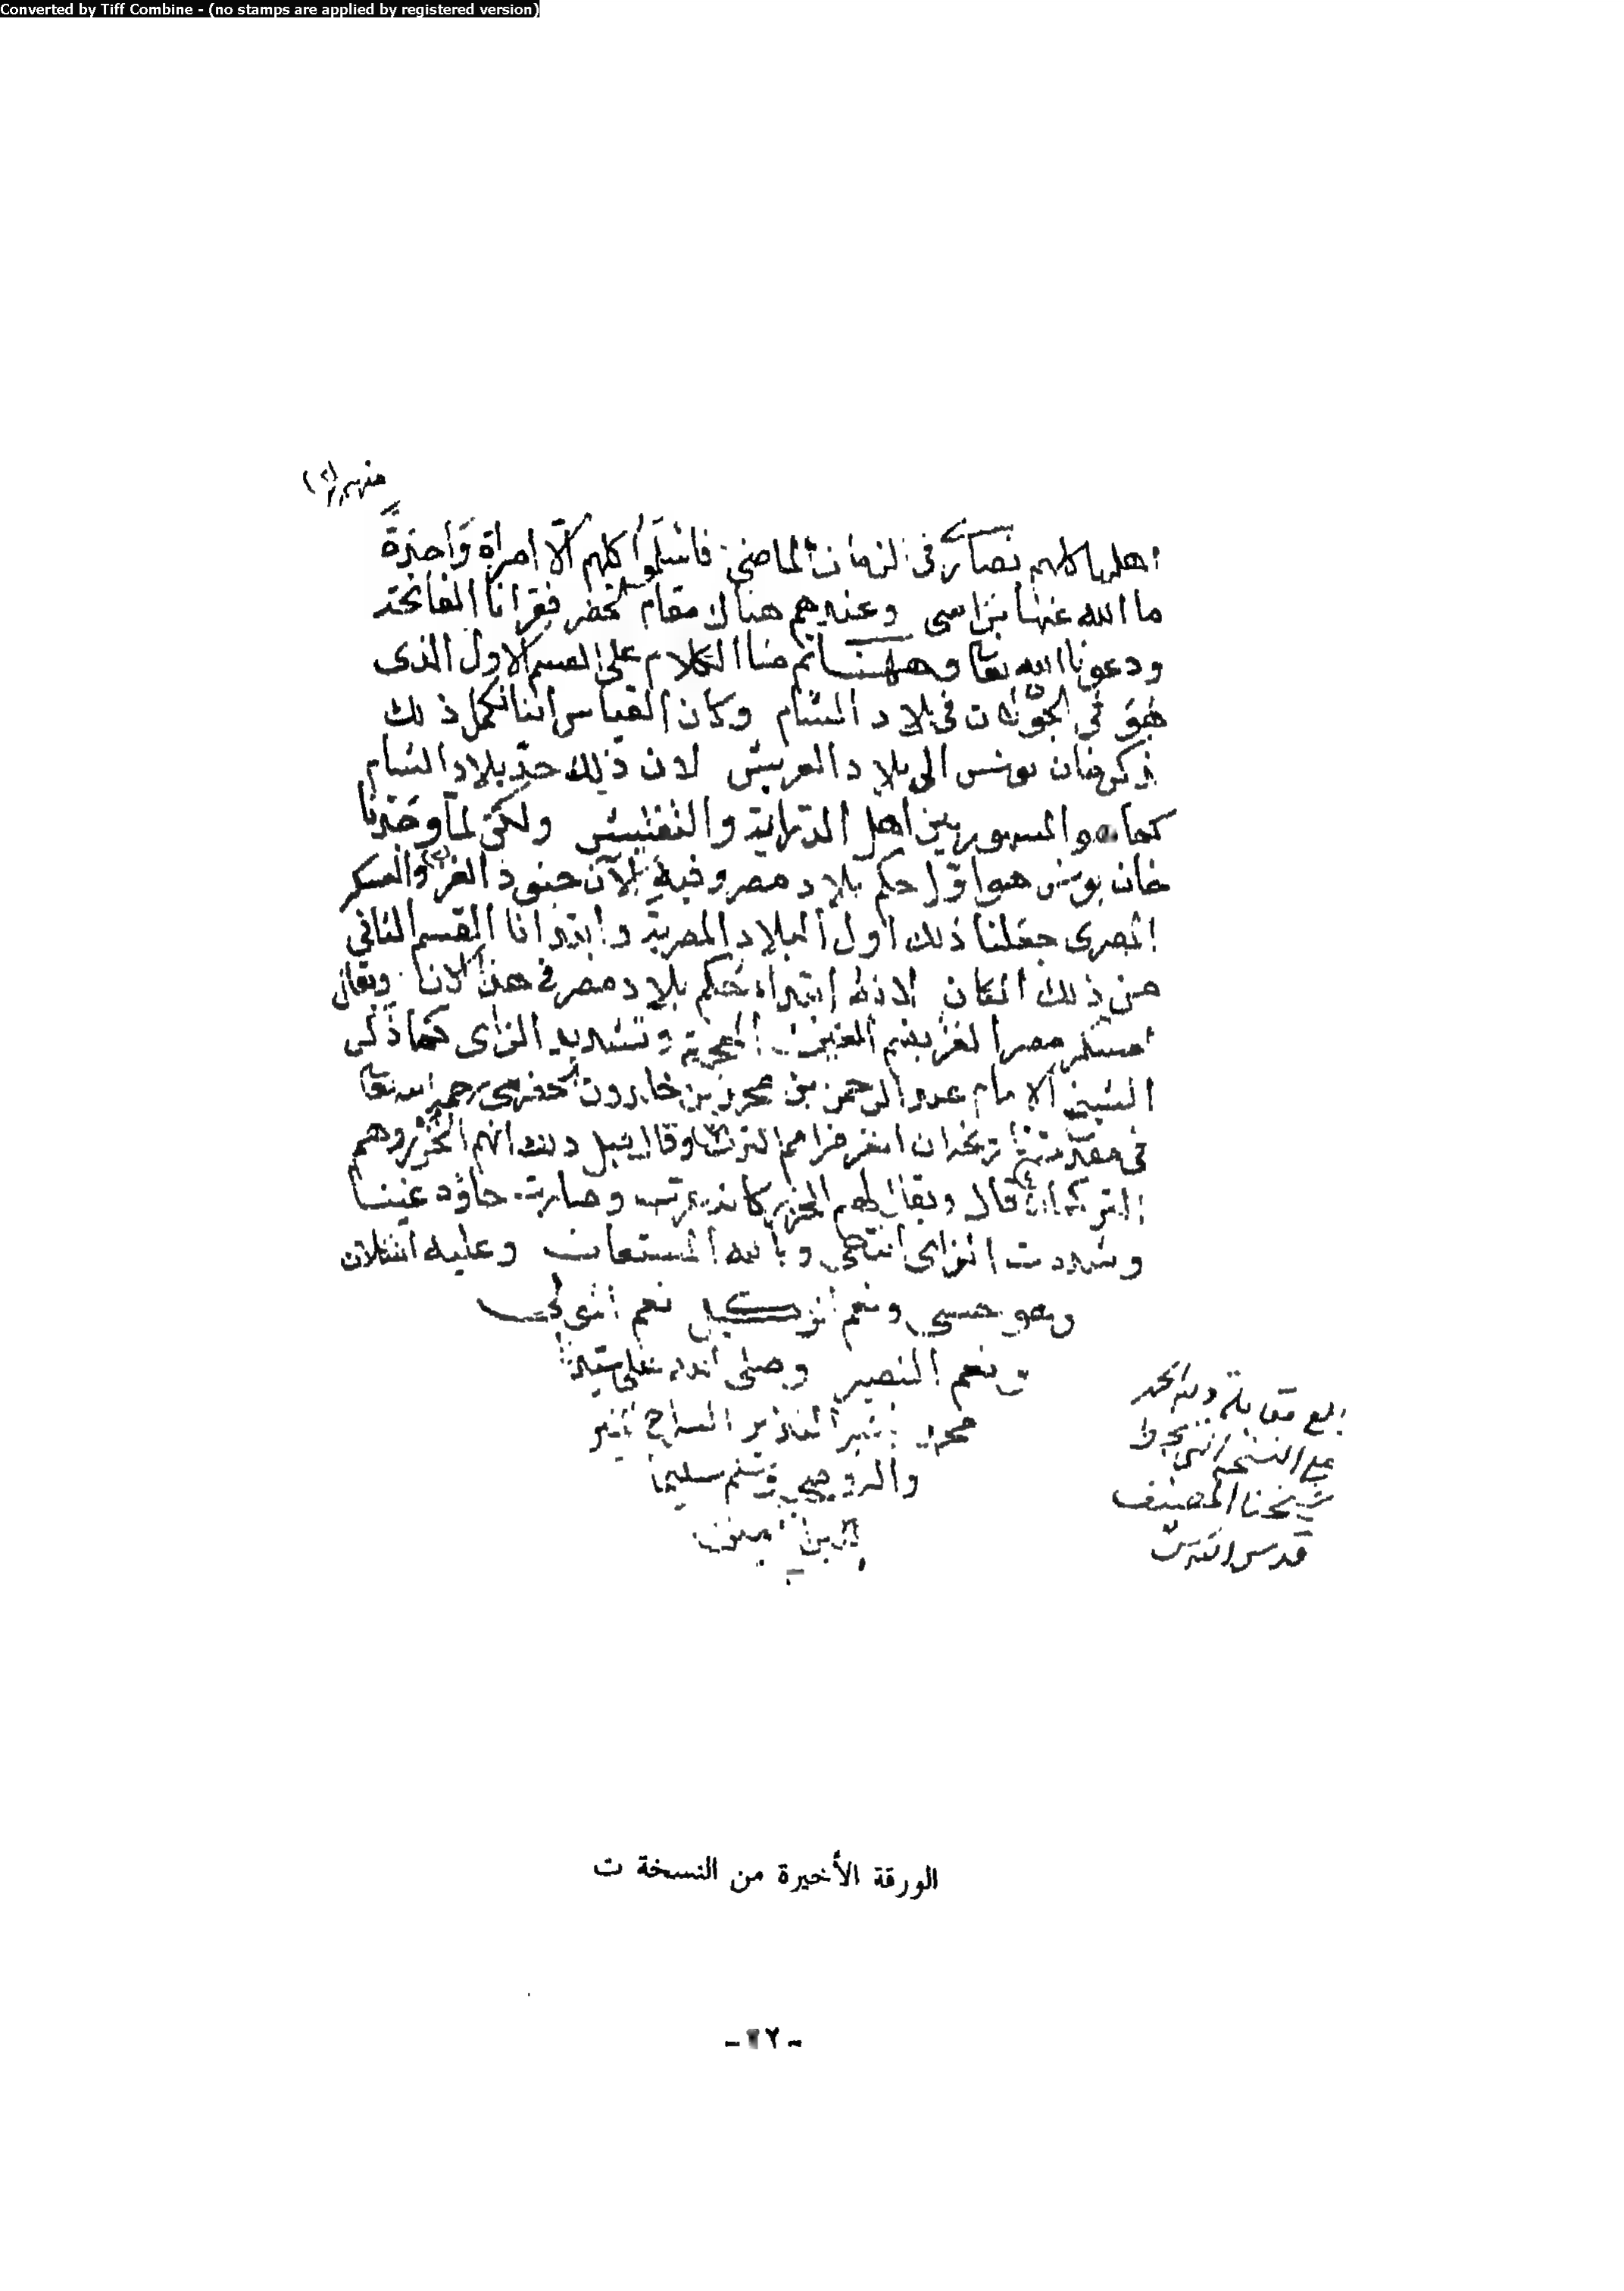 Converted by Tiff Combine - (no stamps are applied by registered version)
منهم
اهلها كلهم نصارى فى الزمان الماضى فاسلموا كلهم الا امراة واحدة
ما الله عنها براضى وعندهم هناك مقام الخضر فقرانا الفاتحة
ودعونا الله تعا وههنا تم منا الكلام على القسم الاول الذى
هو فى الجولان فى بلاد الشام وكان القياس اننا نكمل ذلك
خان يونس الى بلاد العريش لان ذلك حد بلاد الشام
كما هو المشهور بين اهل الدراية والتفتيش ولكن لما وجدنا
خان يونس هو اول حكم بلاد مصر وفيه الآن جنود الغز والعسكر
المصرى جعلنا ذلك اول البلاد المصرية وابتدانا القسم الثانى
من ذلك المكان لانه ابتداء حكم بلاد مصر فى هذا الآن ويقال
لعسكر مصر الغز بضم الغين المعجمة وتشديد الزاى كما ذكر
الشيخ الامام عبد الرحمن بن محمد بن خلدون الحضرمى رحمه الله تعا
فى مقدمة تاريخه ان الغز من امم الترك وقال قبل ذلك انهم الخزر وهم
التركمان قال ويقال لهم الخزر كانه عرب وصارت خاؤه غينا
وشددت الزاى انتهى وبالله المستعان وعليه التكلان
وهو حسبى ونعم الوكيل نعم المولى
ونعم النصير وصلى الله على سيدنا
محمد البشير النذير السراج المنير
والروحى وسلم تسليما
بلغ مقابلة ولله الحمد
على النسخة التى بخط
شيخنا المصنف
قدس الله سره
الورقة الأخيرة من النسخة ت